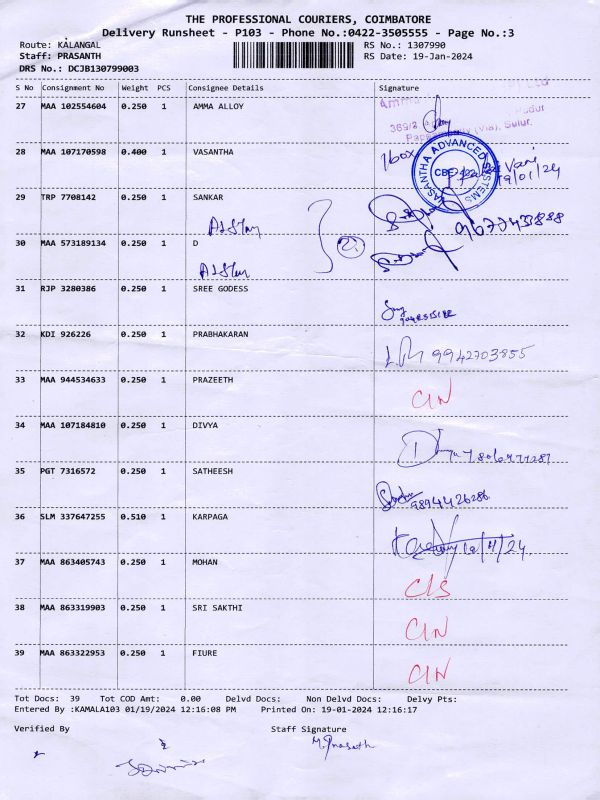 THE PROFESSIONAL COURIERS, COIMBATORE
Delivery Runsheet - P103 - Phone No.:0422-3505555 - Page No.:3
Route: KALANGAL RS No.: 1307990
Staff: PRASANTH RS Date: 19-Jan-2024
DRS No.: DCJB130799003
S No Consignment No Weight PCS Consignee Details Signature
27 MAA 102554604 0.250 1 AMMA ALLOY
28 MAA 107170598 0.400 1 VASANTHA
1box
VASANTHA ADVANCED SYSTEMS
19/01/24
29 TRP 7708142 0.250 1 SANKAR
30 MAA 573189134 0.250 1 D
31 RJP 3280386 0.250 1 SREE GODESS
32 KDI 926226 0.250 1 PRABHAKARAN
9942703855
33 MAA 944534633 0.250 1 PRAZEETH
C/N
34 MAA 107184810 0.250 1 DIVYA
35 PGT 7316572 0.250 1 SATHEESH
9894426286
36 SLM 337647255 0.510 1 KARPAGA
37 MAA 863405743 0.250 1 MOHAN
C/S
38 MAA 863319903 0.250 1 SRI SAKTHI
C/N
39 MAA 863322953 0.250 1 FIURE
C/N
Tot Docs: 39 Tot COD Amt: 0.00 Delvd Docs: Non Delvd Docs: Delvy Pts:
Entered By :KAMALA103 01/19/2024 12:16:08 PM Printed On: 19-01-2024 12:16:17
Verified By Staff Signature
M. Prasath